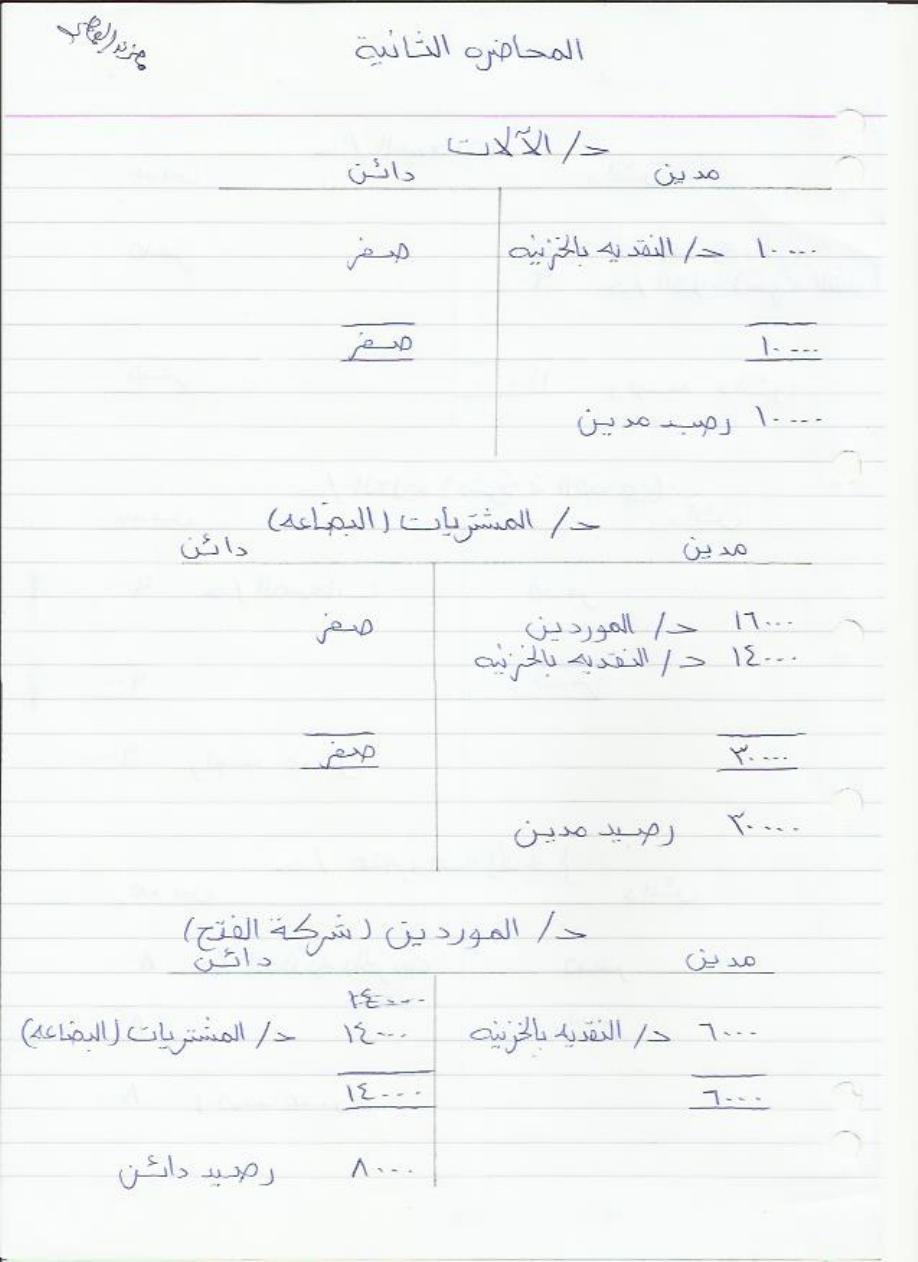 المحاضره الثانية
ح/ الآلات
مدين دائن
١٠٠٠٠ ح/ النقديه بالخزنيه صفر
١٠٠٠٠ صفر
١٠٠٠٠ رصيد مدين
ح/ المشتريات (البضاعه)
مدين دائن
١٦٠٠٠ ح/ الموردين صفر
١٤٠٠٠ ح/ النقديه بالخزنيه
٣٠٠٠٠ صفر
٣٠٠٠٠ رصيد مدين
ح/ الموردين (شركة الفتح)
مدين دائن
٦٠٠٠ ح/ النقديه بالخزنيه ١٤٠٠٠ ح/ المشتريات (البضاعه)
٦٠٠٠ ١٤٠٠٠
٨٠٠٠ رصيد دائن